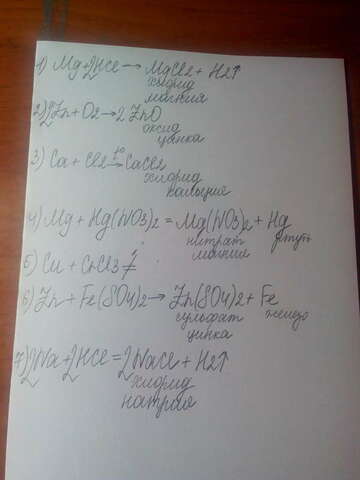 1) Mg + 2HCl → MgCl2 + H2↑
хлорид
магния
2) 2Zn + O2 → 2 ZnO
оксид
цинка
3) Ca + Cl2 t° → CaCl2
хлорид
кальция
4) Mg + Hg(NO3)2 = Mg(NO3)2 + Hg
нитрат ртуть
магния
5) Cu + CrCl3 ≠
6) Zn + Fe(SO4)2 → Zn(SO4)2 + Fe
сульфат железо
цинка
7) 2Na + 2HCl = 2NaCl + H2↑
хлорид
натрия